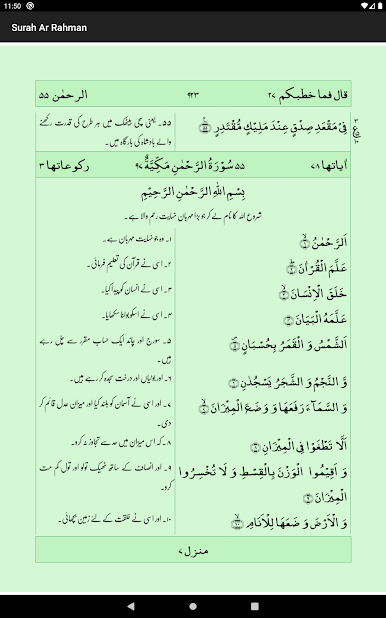 11:50
Surah Ar Rahman
قال فما خطبکم ۲۷
۹۲۳
الرحمٰن ۵۵
فِیْ مَقْعَدِ صِدْقٍ عِنْدَ مَلِیْكٍ مُّقْتَدِرٍ ﴿۵۵﴾
۵۵۔ یعنی سچی بیٹھک میں ہر طرح کی قدرت رکھنے
والے بادشاہ کی بارگاہ میں۔
اٰیاتها ۷۸
۵۵ سُوْرَةُ الرَّحْمٰنِ مَكِّیَّةٌ ۹۷
رکوعاتها ۳
بِسْمِ اللّٰهِ الرَّحْمٰنِ الرَّحِیْمِ
شروع اللہ کا نام لے کر جو بڑا مہربان نہایت رحم والا ہے۔
اَلرَّحْمٰنُ ﴿۱﴾
۱۔ وہ جو نہایت مہربان ہے۔
عَلَّمَ الْقُرْاٰنَ ﴿۲﴾
۲۔ اسی نے قرآن کی تعلیم فرمائی۔
خَلَقَ الْاِنْسَانَ ﴿۳﴾
۳۔ اسی نے انسان کو پیدا کیا۔
عَلَّمَهُ الْبَیَانَ ﴿۴﴾
۴۔ اسی نے اسکو بولنا سکھایا۔
اَلشَّمْسُ وَ الْقَمَرُ بِحُسْبَانٍ ﴿۵﴾
۵۔ سورج اور چاند ایک حساب مقرر سے چل رہے
ہیں۔
وَّ النَّجْمُ وَ الشَّجَرُ یَسْجُدٰنِ ﴿۶﴾
۶۔ اور بوٹیاں اور درخت سجدہ کر رہے ہیں۔
وَ السَّمَآءَ رَفَعَهَا وَ وَضَعَ الْمِیْزَانَ ﴿۷﴾
۷۔ اور اسی نے آسمان کو بلند کیا اور میزان عدل قائم کر
دی۔
اَلَّا تَطْغَوْا فِی الْمِیْزَانِ ﴿۸﴾
۸۔ کہ اس میزان میں حد سے تجاوز نہ کرو۔
وَ اَقِیْمُوا الْوَزْنَ بِالْقِسْطِ وَ لَا تُخْسِرُوا
الْمِیْزَانَ ﴿۹﴾
۹۔ اور انصاف کے ساتھ ٹھیک تولو اور تول کم مت
کرو۔
وَ الْاَرْضَ وَ ضَعَهَا لِلْاَنَامِ ﴿۱۰﴾
۱۰۔ اور اسی نے خلقت کے لئے زمین بچھائی۔
منزل ۷